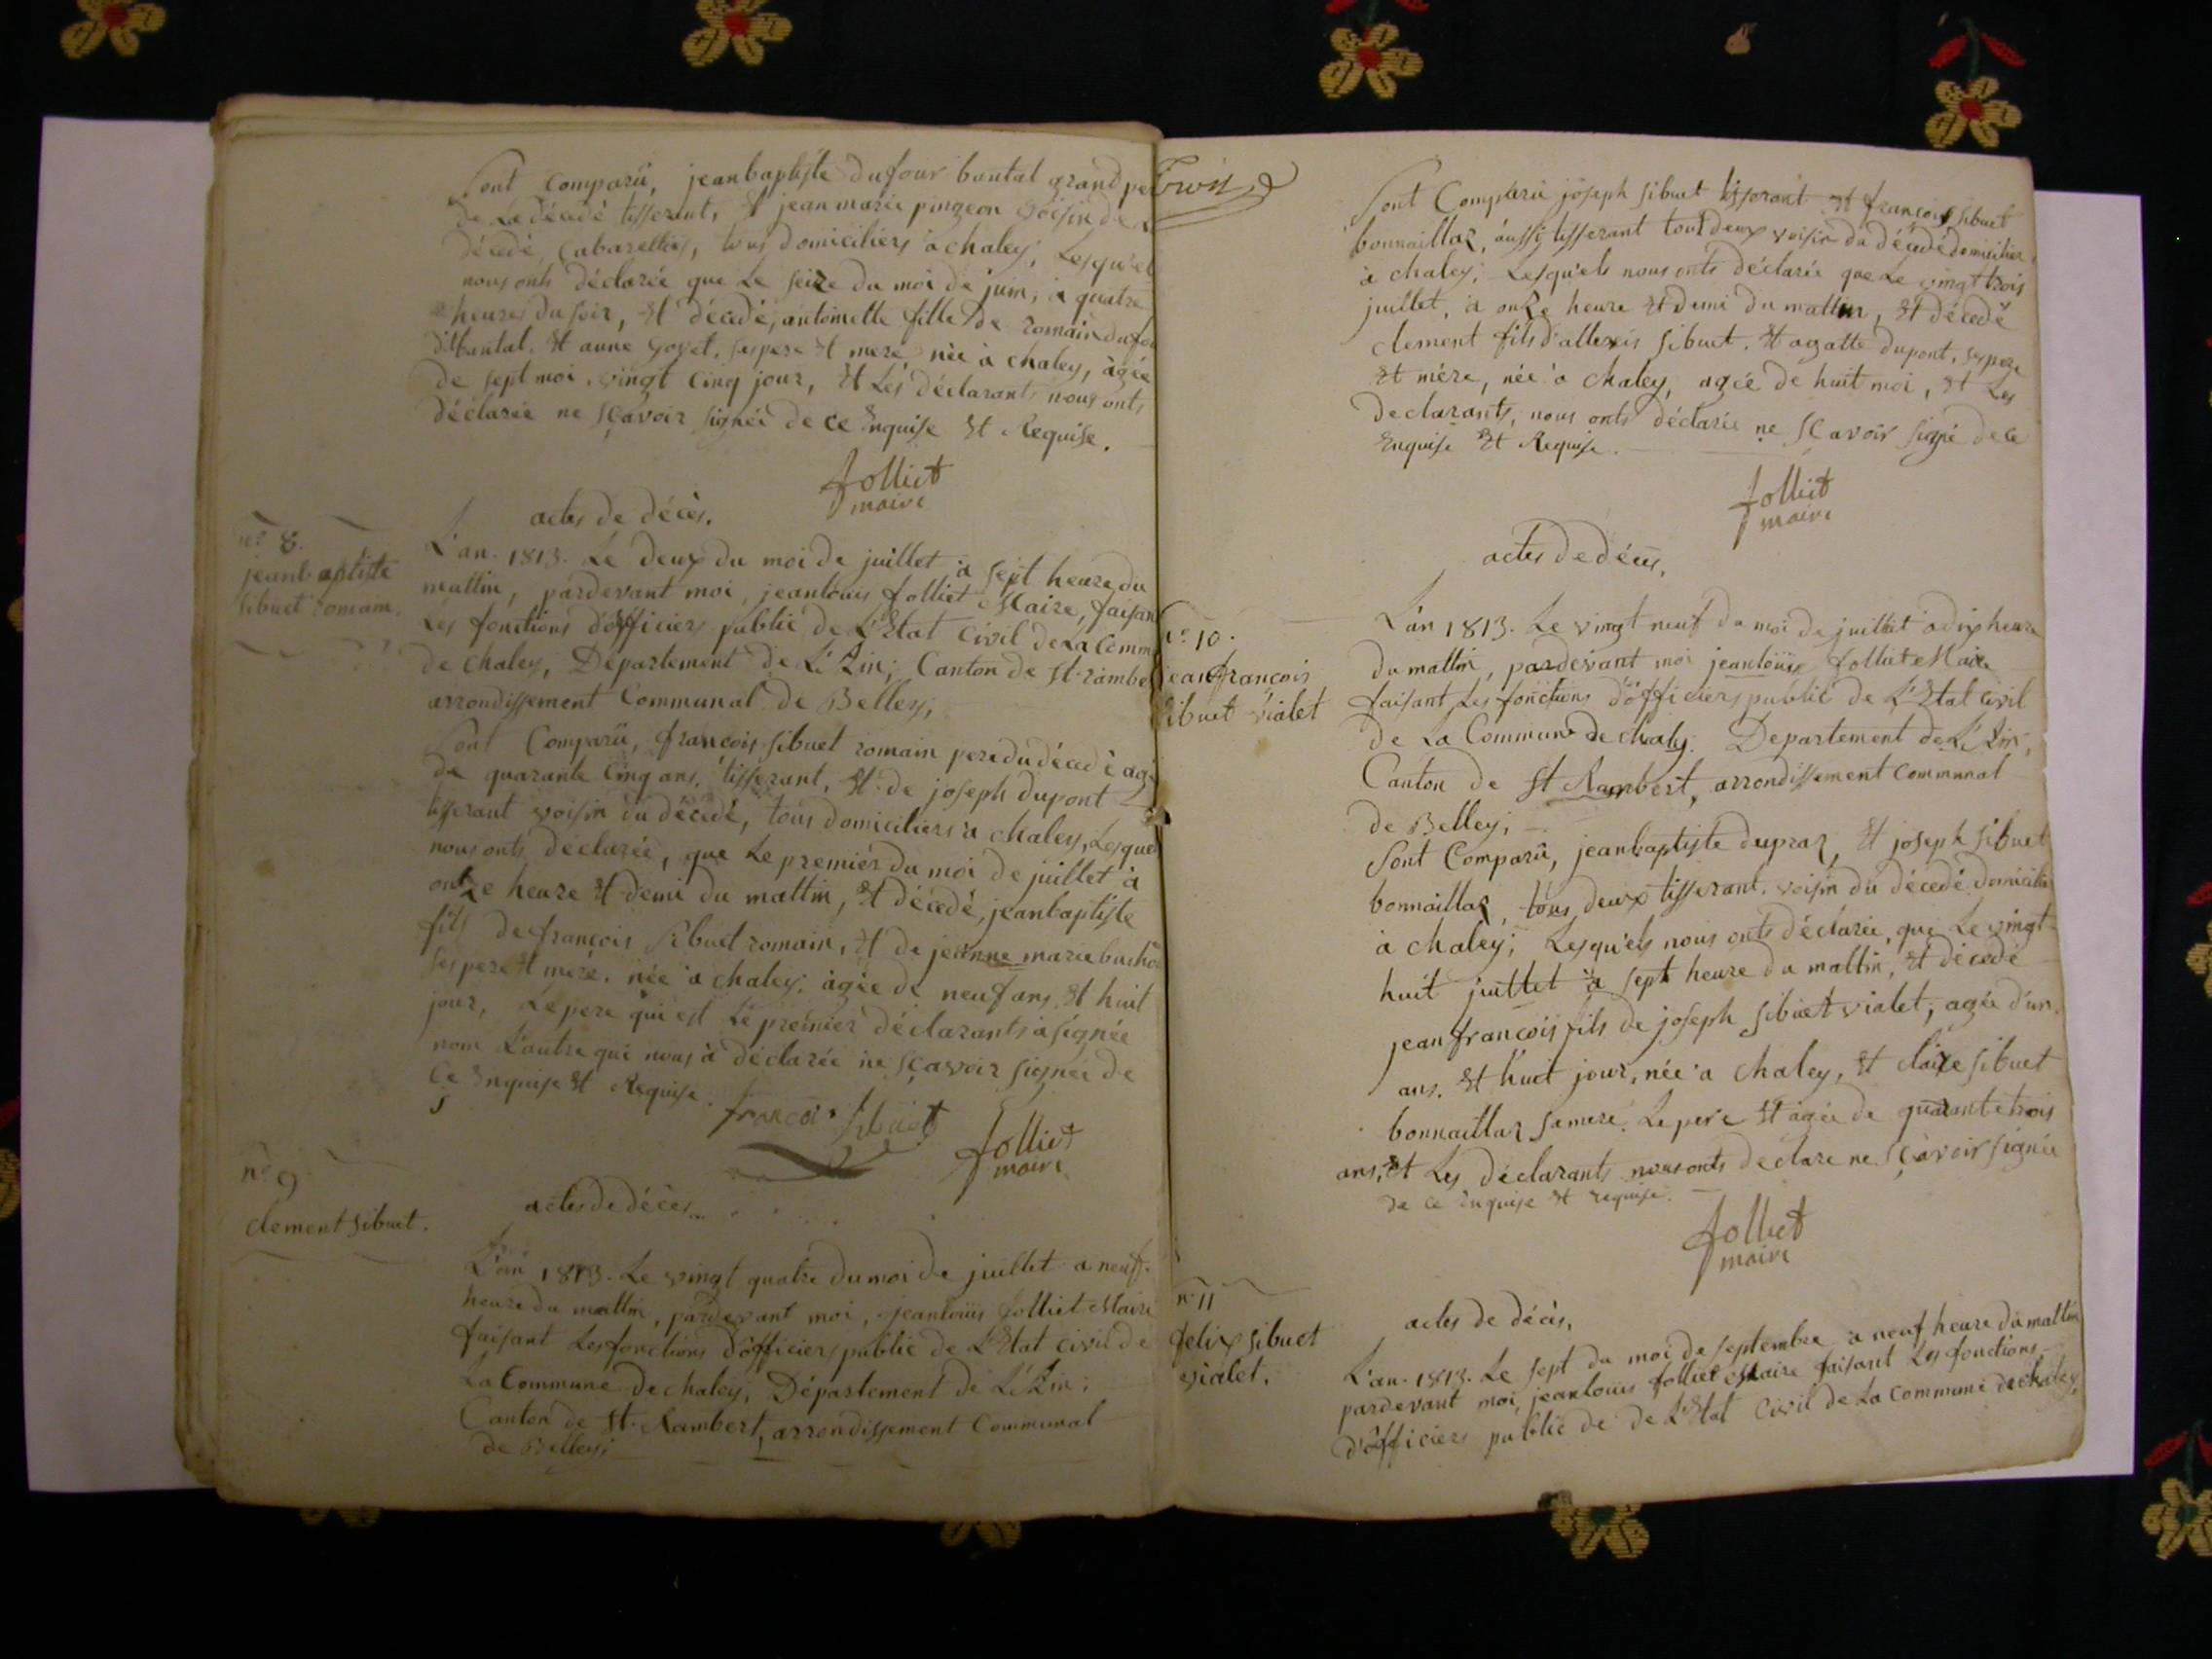 Sont Comparu, jeanbaptiste dufour buntal grand pe
de La décedé tisserant, Et jean marie pingeon voisin de
décedé, Cabarettiers, tous domiciliers a chaley, Lesqu'el
nous onts déclarée que Le seize du moi de juin, a quatre
heures du soir, Et décedé, antoinette fille de romain dufou
dit buntal. Et anne goyet, ses pere Et mere née à chaley, àgée
de sept moi, vingt cinq jour, Et Lés déclarants nous onts
déclarée ne sçavoir signéé de ce Enquise Et Requise.
folliet
maire
actes de décès.
n° 8.
jeanbaptiste
sibuet romain.
L'an. 1813. Le deux du moi de juillet à sept heure du
mattin, pardevant moi, jeanlouis folliet Maire, faisan
Les fonctions d'officiers public de L'Etat Civil de La Comm
de chaley, Departement de L'Ain; Canton de St. rambe
arrondissement Communal de Belley,
Sont Comparu, francois sibuet romain pere du décedé agé
de quarante Cinq ans, tisserant, Et de joseph dupont
tisserant voisin du décedé, tous domiciliers a chaley, Lesque
nous onts déclarée, que Le premier du moi de juillet à
onze heure Et demi du mattin, Et décedé, jeanbaptiste
fils de francois sibuet romain, Et de jeanne marie bucho
ses pere Et mere. née a chaley. agée de neuf ans Et huit
jour, Le pere qui est Le premier déclarants a signée
nom L'autre qui nous à déclarée ne sçavoir signée de
Ce Enquise Et Requise.
francois sibuet
folliet
maire
n° 9
clement sibuet.
actes de décès
L'an 1813. Le vingt quatre du moi de juillet a neuf
heure du mattin, pardevant moi, jeanlouis folliet Maire
faisant Les fonctions d'officiers public de L'Etat Civil de
La Commune de chaley, Département de L'Ain;
Canton de St. Rambert, arrondissement Communal
de Belley;
Sont Comparu joseph sibuet tisserant Et françois sibuet
bonnaillaz, aussi tisserant tout deux voisin du décedé domicilier
à chaley; Lesqu'els nous onts déclarée que Le vingt trois
juillet, a onze heure Et demi du mattin, Et décedé
clement fils d'allexis sibuet. Et agatte dupont, ses pere
Et mére, née a chaley, agée de huit moi, Et Les
declarants, nous onts déclarée ne sçavoir signé de ce
Enquise Et Requise.
folliet
maire
actes de décès,
n° 10.
jeanfrançois
sibuet vialet
L'an 1813. Le vingt neuf du moi de juillet a dix heure
du mattin, pardevant moi jeanlouis folliet Maire
faisant Les fonctions d'officiers public de L'Etat Civil
de La Commune de chaley. Departement de L'Ain,
Canton de St Rambert, arrondissement Communal
de Belley;
Sont Comparu, jeanbaptiste dupraz, Et joseph sibuet
bonnaillaz, tous deux tisserant. voisin du décedé domicilie
à chaley; Lesqu'els nous onts déclarée, que Le vingt
huit juillet a sept heure du mattin, Et décedé
jeanfrancois fils de joseph sibuet vialet, agée d'un
ans. Et huit jour, née a chaley, Et claire sibuet
bonnaillaz sa mere. Le pere Et agée de quarante trois
ans, Et Les déclarants nous onts declare ne sçavoir signée
de ce Enquise Et requise.
folliet
maire
n° 11
felix sibuet
vialet.
actes de décès,
L'an. 1813. Le sept du moi de septembre a neuf heure du mattin
pardevant moi, jeanlouis folliet Maire faisant Les fonctions
d'officiers public de de L'Etat Civil de La Commune de chaley,